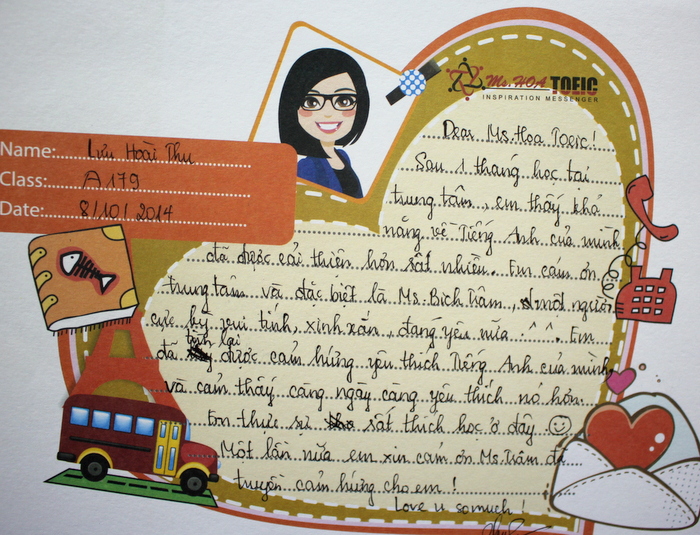 Ms. HOA TOEIC
INSPIRATION MESSENGER
Name: Lưu Hoài Thu
Class: A179
Date: 8/10/2014
Dear Ms.Hoa Toeic!
Sau 1 tháng học tại
trung tâm, em thấy khả
năng về Tiếng Anh của mình
đã được cải thiện hơn rất nhiều. Em cám ơn
trung tâm và đặc biệt là Ms. Bích Trâm, 1 người
cực kỳ vui tính, xinh xắn, đáng yêu nữa ^^. Em
đã tìm lại được cảm hứng yêu thích Tiếng Anh của mình
và cảm thấy càng ngày càng yêu thích nó hơn.
Em thực sự rất thích học ở đây ☺
Một lần nữa em xin cảm ơn Ms.Trâm đã
truyền cảm hứng cho em!
Love u so much!